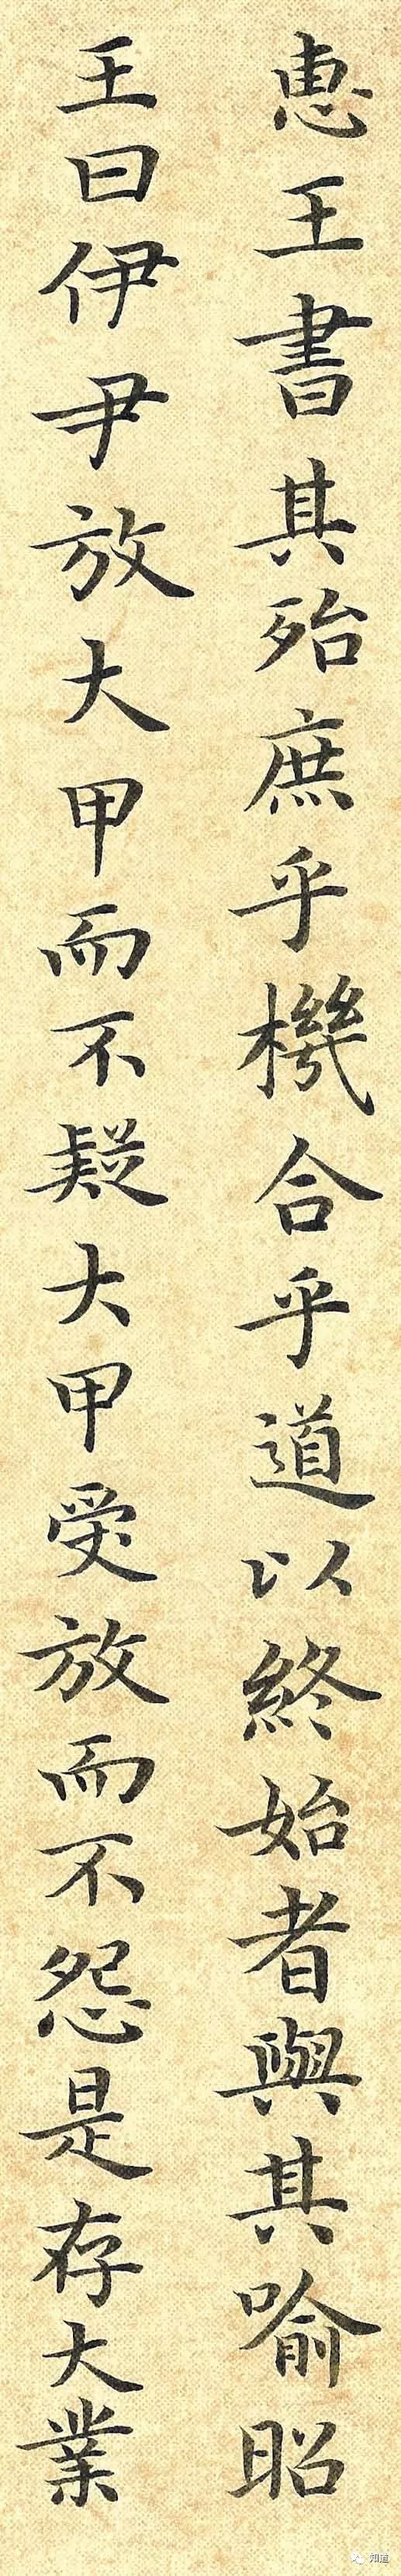 惠王書其殆庶乎機合乎道以終始者與其喻昭
王曰伊尹放大甲而不疑大甲受放而不怨是存大業
知道